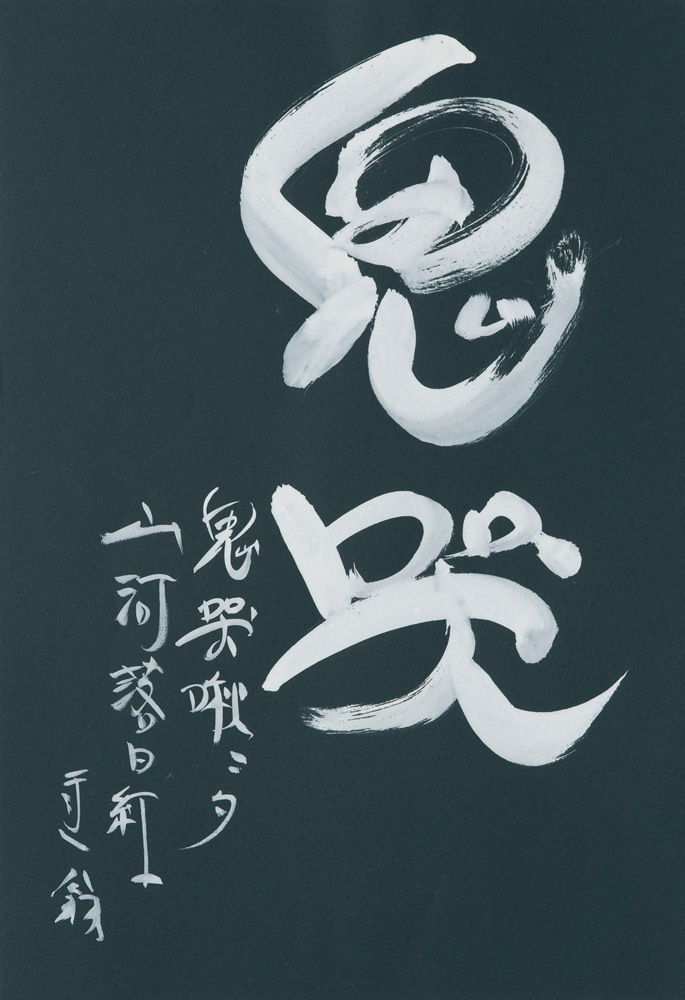 鬼哭
鬼哭啾〻夕
山河落日紅
翁